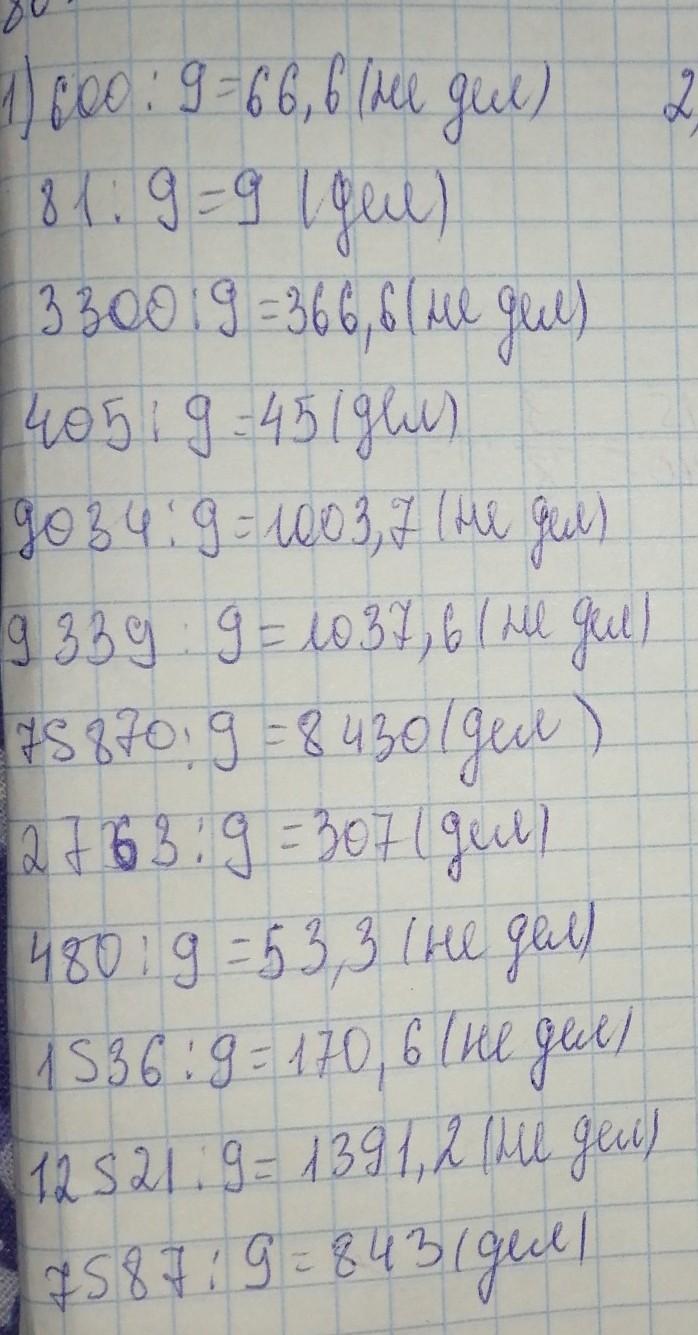 1) 600 : 9 = 66,6 (не дел) 2,
81 : 9 = 9 (дел)
3300 : 9 = 366,6 (не дел)
405 : 9 = 45 (дел)
9034 : 9 = 1003,7 (не дел)
9339 : 9 = 1037,6 (не дел)
75870 : 9 = 8430 (дел)
2763 : 9 = 307 (дел)
480 : 9 = 53,3 (не дел)
1536 : 9 = 170,6 (не дел)
12521 : 9 = 1391,2 (не дел)
7587 : 9 = 843 (дел)